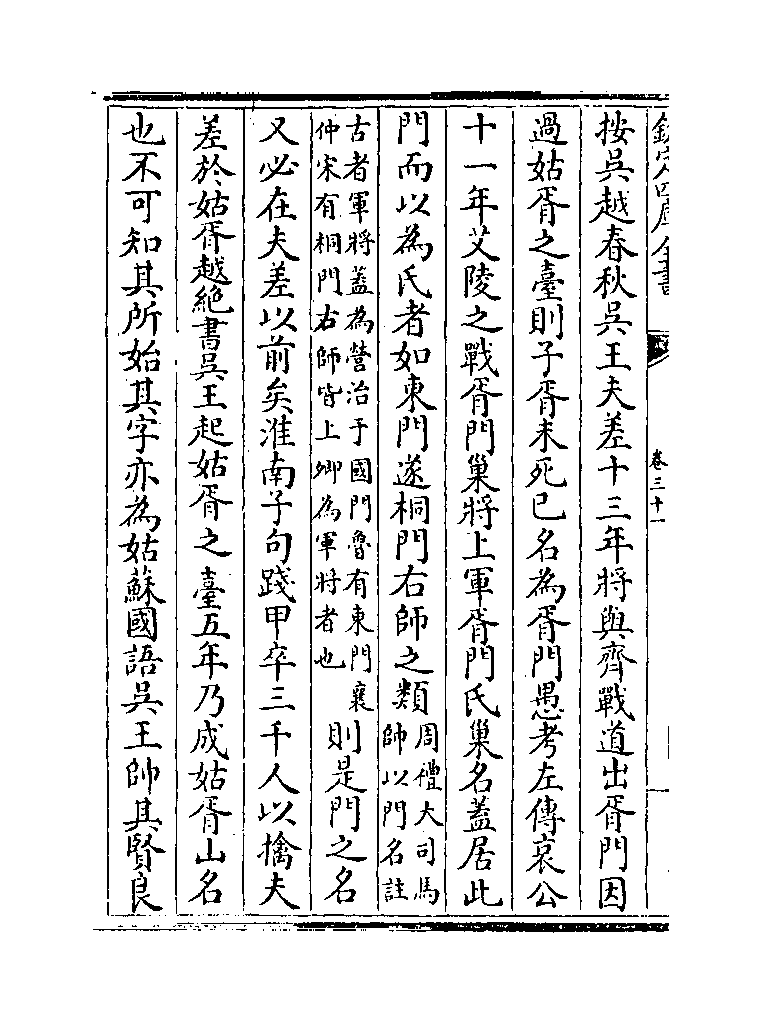 欽定四庫全書
卷三十一
按吳越春秋吳王夫差十三年將與齊戰道出胥門因
過姑胥之臺則子胥未死已名為胥門愚考左傳哀公
十一年艾陵之戰胥門巢將上軍胥門氏巢名蓋居此
門而以為氏者如東門遂桐門右師之類周禮大司馬
帥以門名註
古者軍將蓋為營治于國門魯有東門襄
仲宋有桐門右師皆上卿為軍將者也則是門之名
又必在夫差以前矣淮南子句踐甲卒三千人以擒夫
差於姑胥越絕書吳王起姑胥之臺五年乃成姑胥山名
也不可知其所始其字亦為姑蘇國語吳王帥其賢良